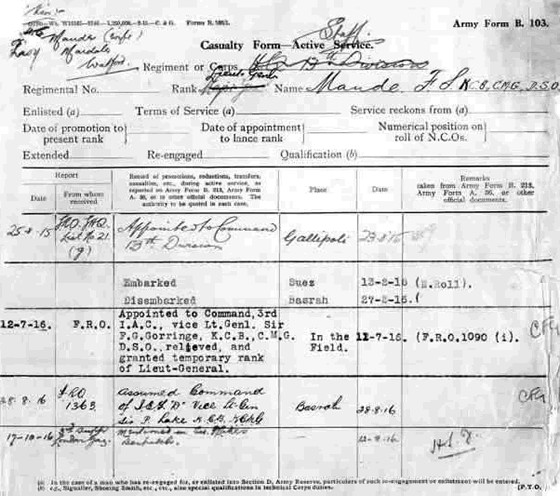 Army Form B. 103.
Casualty Form—Active Service.
Staff
Regiment or Corps 13th Division
Lieut. Genl.
Regimental No. Rank Name Maude F S KCB, CMG, DSO
Enlisted (a) Terms of Service (a) Service reckons from (a)
Date of promotion to present rank
Date of appointment to lance rank
Numerical position on roll of N.C.Os.
Extended Re-engaged Qualification (b)
Report
Date From whom received
Record of promotions, reductions, transfers, casualties, etc., during active service, as reported on Army Form B. 213, Army Form A. 36, or in other official documents. The authority to be quoted in each case.
Place
Date
Remarks taken from Army Form B. 213, Army Form A. 36, or other official documents.
25-8-15 List No. 21 (g) Appointed to Command 13th Division Gallipoli 23-8-15
Embarked Suez (E.Roll).
Disembarked Basrah
12-7-16. F.R.O. Appointed to Command, 3rd
I.A.C., vice Lt.Genl. Sir
F.G.Gorringe, K.C.B., C.M.G.
D.S.O., relieved, and
granted temporary rank
of Lieut-General.
In the Field. 11-7-16. (F.R.O.1090 (i).
28.8.16 FRO 1363 Assumed Command
of I.E.F. "D" vice Lt-Gen
Sir P. Lake K.C.B.
Basrah 28-8-16
17-10-16 London Gaz. Mentioned in
Despatches
(a) In the case of a man who has re-engaged for, or enlisted into Section D, Army Reserve, particulars of such re-engagement or enlistment will be entered.
(b) e.g., Signaller, Shoeing Smith, etc., etc., also special qualifications in technical Corps duties.
[P.T.O.